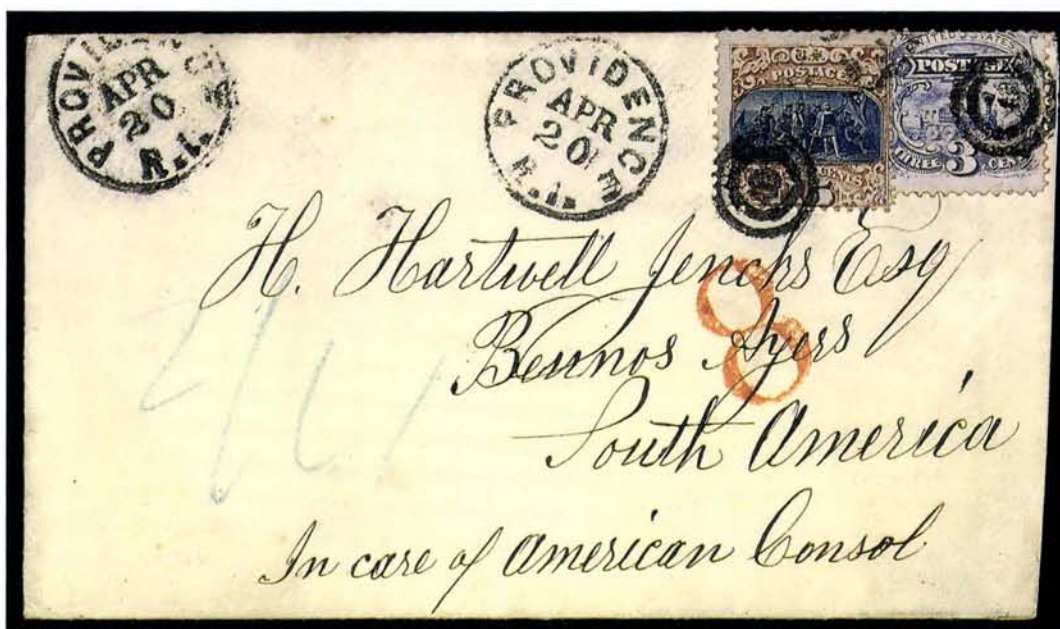 PROVIDENCE
APR
20
R.I.
PROVIDENCE
APR
20
R.I.
U.S.
POSTAGE
CENTS
15
UNITED STATES
POSTAGE
THREE 3 CENTS
H. Hartwell Jencks Esq
8
Beunos Ayers
8
South America
In care of American Consol